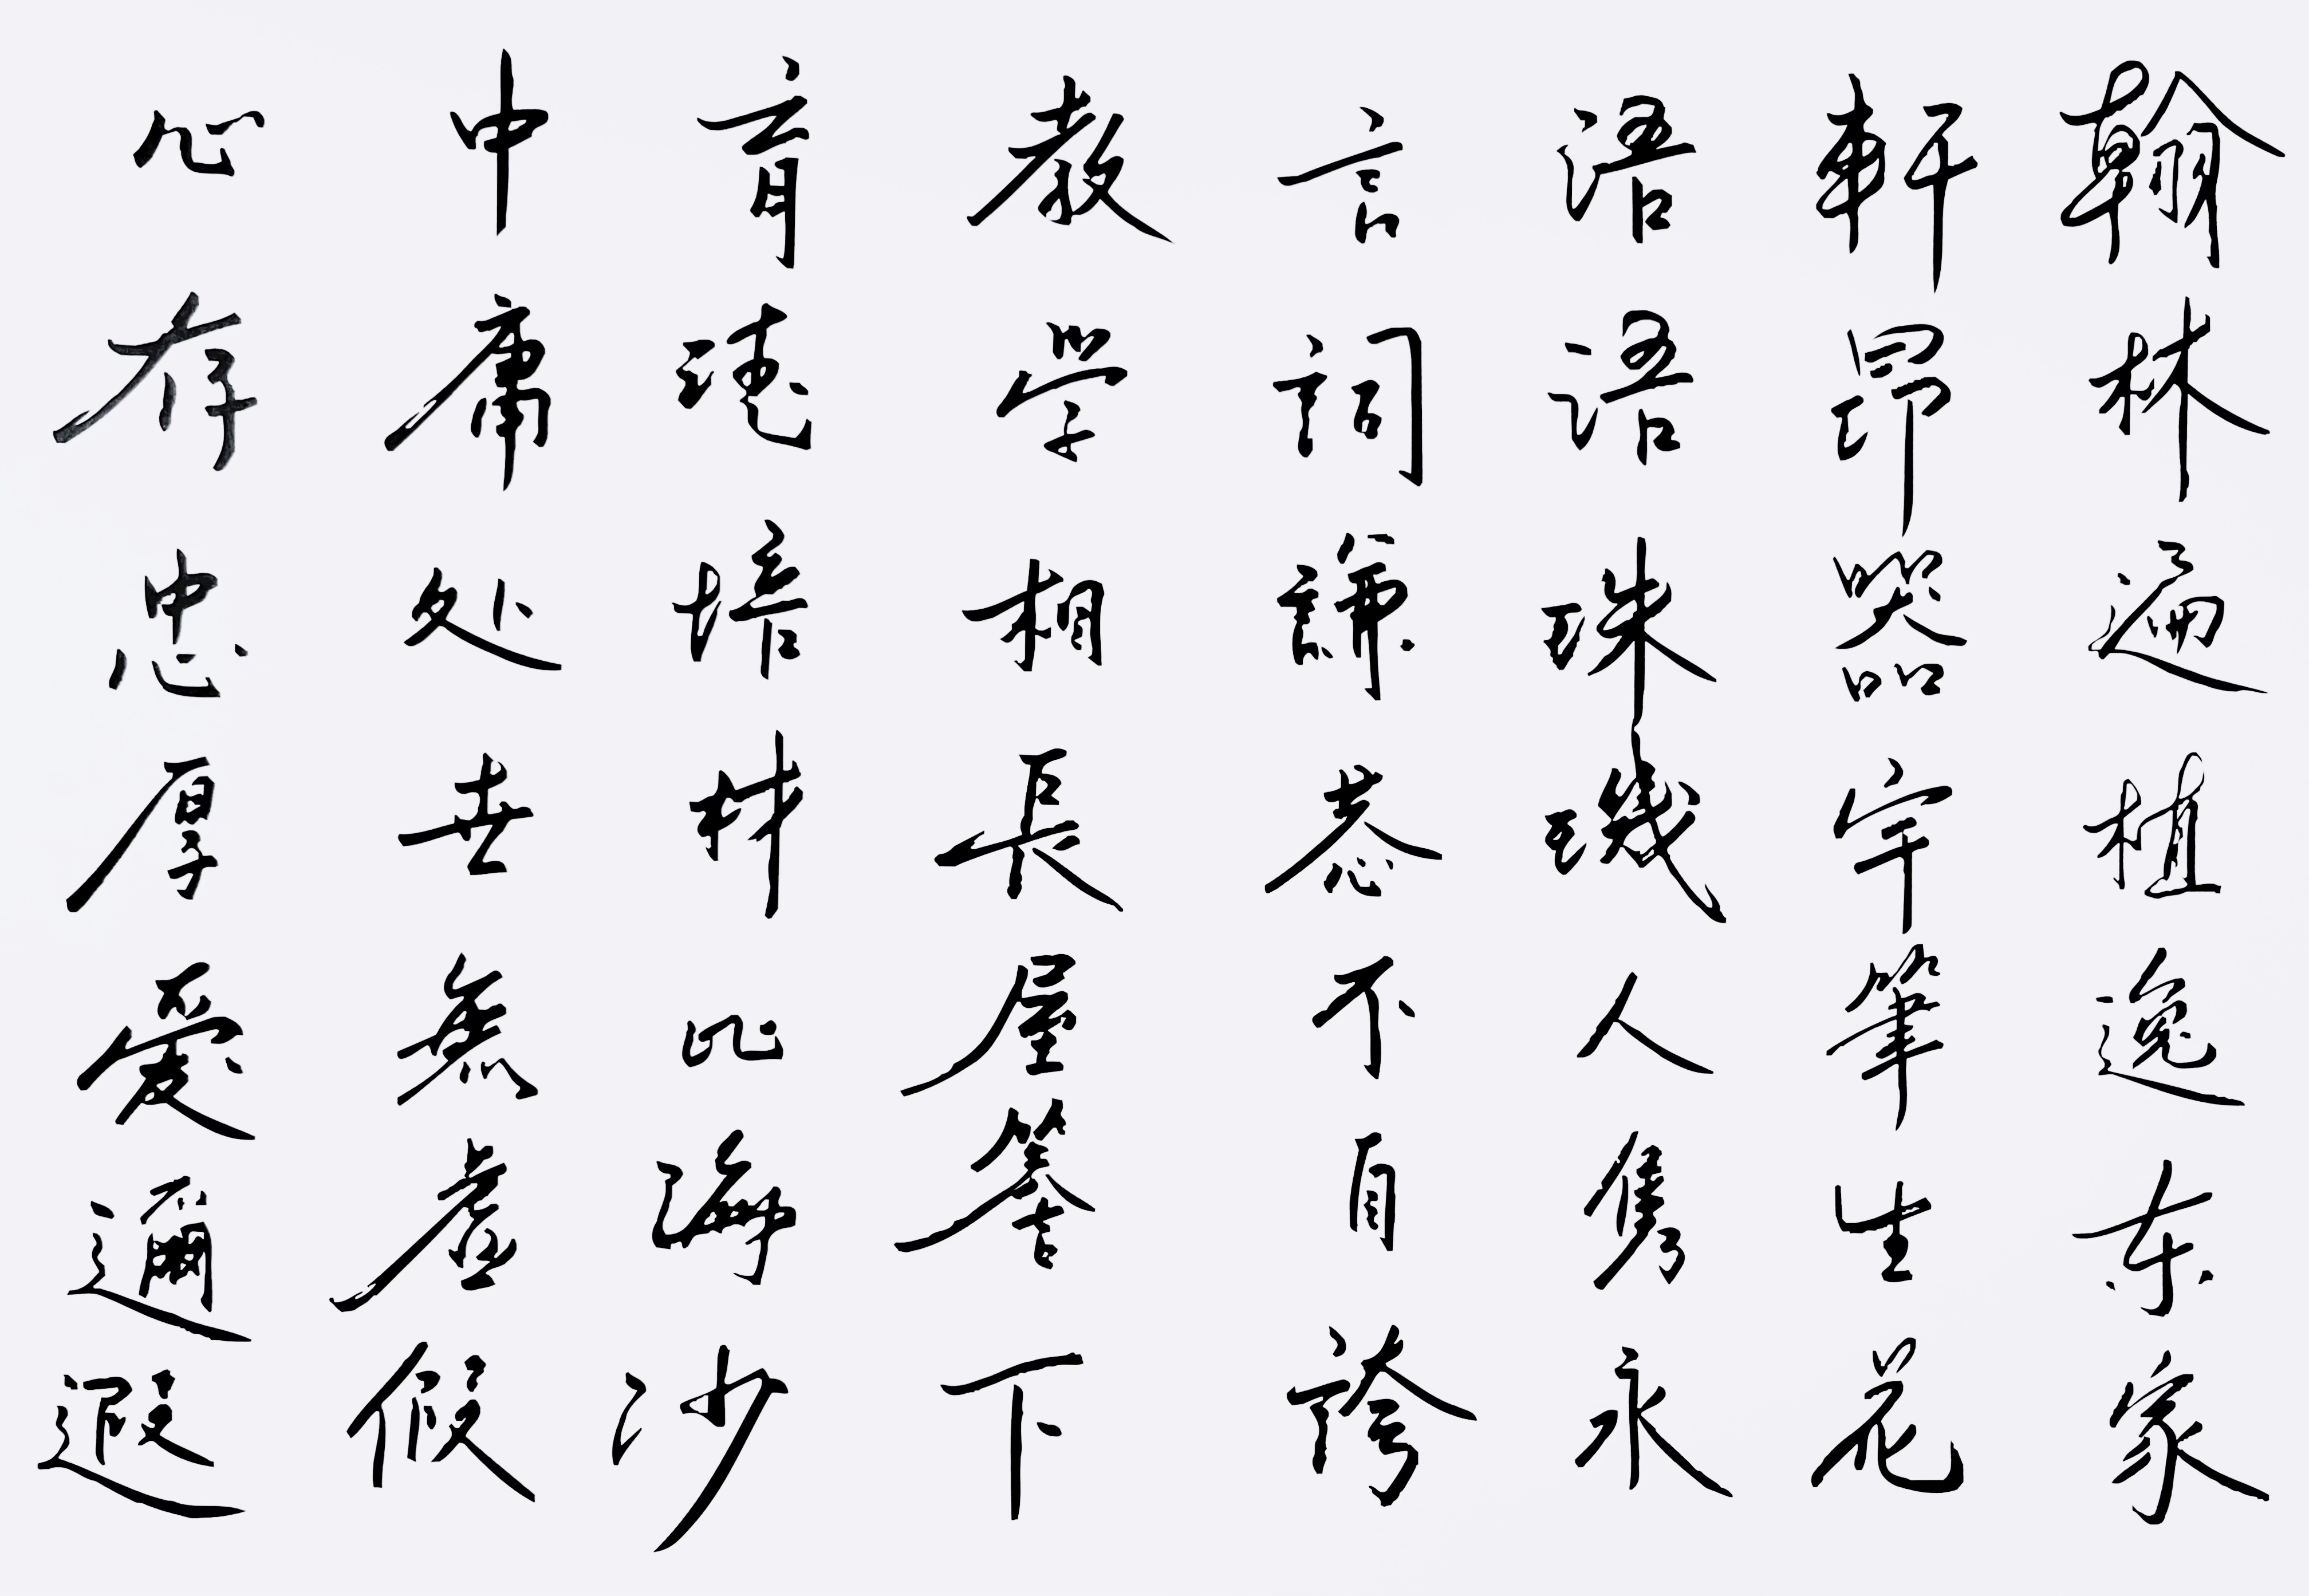 翰林遍植逸东家
軒昂器宇筆生花
语语珠璣人雋永
言詞謙恭不自誇
教学相長屋簷下
育德培材比海沙
中庸处世無虚假
心存忠厚愛邇遐